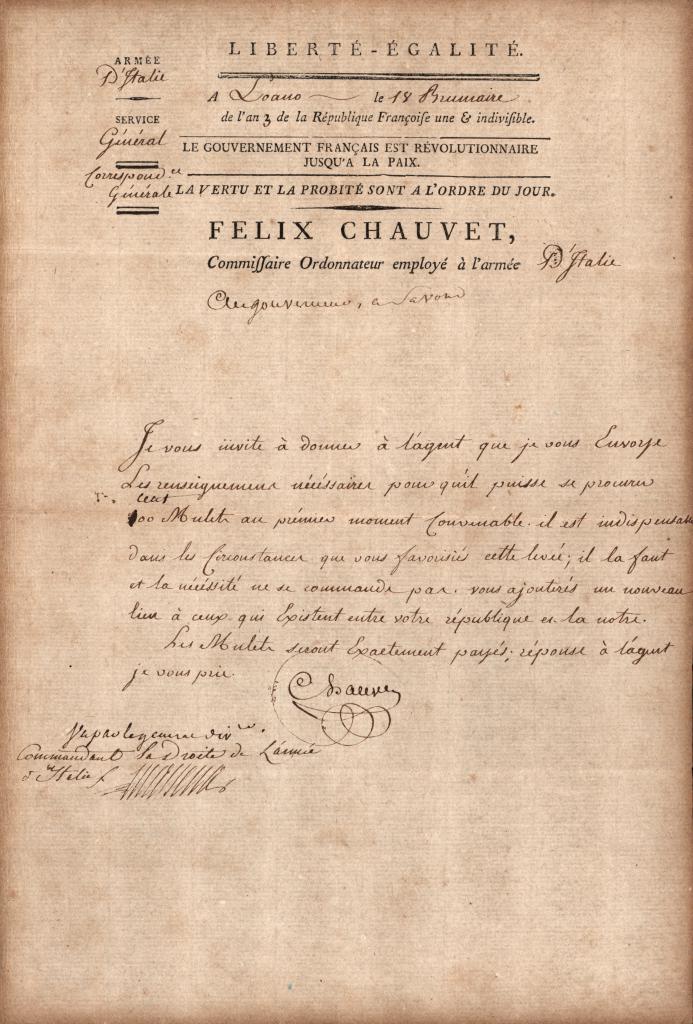 LIBERTÉ-ÉGALITÉ.
ARMÉE
D'Italie
A Loano le 18 Brumaire
de l'an 3 de la République Françoiſe une & indiviſible.
SERVICE
Général
Correspond.ce
Générale
LE GOUVERNEMENT FRANÇAIS EST RÉVOLUTIONNAIRE
JUSQU'A LA PAIX.
LA VERTU ET LA PROBITÉ SONT A L'ORDRE DU JOUR.
FELIX CHAUVET,
Commiſſaire Ordonnateur employé à l'armée D'Italie
Au gouverneur, a Savone
Je vous invite à donner à l'agent que je vous Envoye
Les renseignemens nécéssaires pour qu'il puisse se procurer
cent
100 Mulets au prémier moment Convenable. il est indispensable
dans les Circonstances que vous favorisiés cette levée; il la faut
et la nécéssité ne se commande pas. vous ajouterés un nouveau
lien à ceux qui Existent entre votre république et la notre.
Les Mulets seront Exactement payés; réponse à l'agent
je vous prie.
Chauvet
Vu par le general div.re
Commandant la Droite de L'armée
d'Italie
Massena